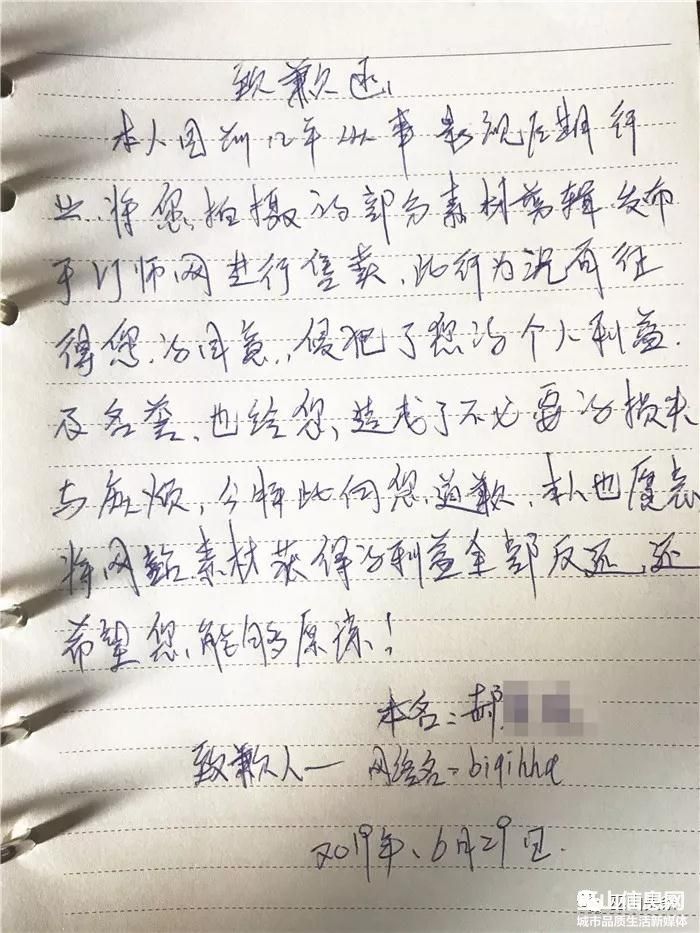 致歉函
本人因前几年从事影视后期行
业,将您拍摄的部分素材剪辑发布
于VJ师网进行售卖,此行为没有征
得您的同意,侵犯了您的个人利益
及名誉,也给您造成了不必要的损失
与麻烦,今特此向您道歉,本人也愿意
将网站素材获得的利益全部反还,还
希望您能够原谅!
本名:郝
致歉人— 网络名:biqihha
2019年6月29日.
山信息网
城市品质生活新媒体